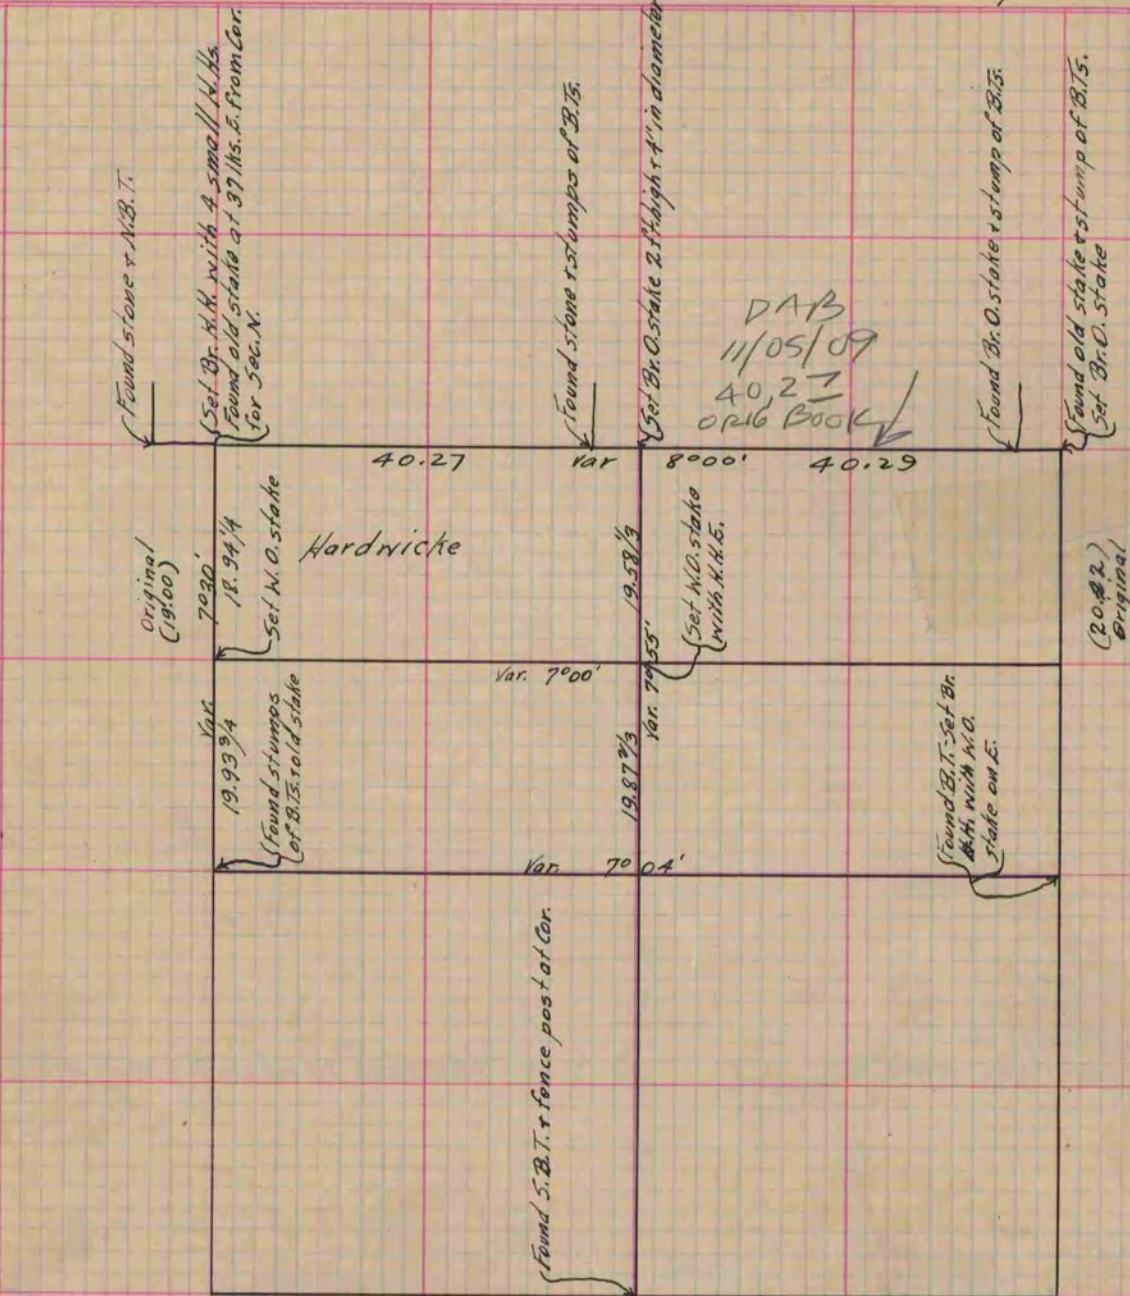 Found stone + N.B.T.
Set Br. H.H. with 4 small H.Hs.
Found old stake at 37 lks. E. from Cor.
for Sec. N.
Found stone + stumps of B.Ts.
Set Br. O. stake 2 ft. high + 4" in diameter
DAB
11/05/09
40,27
ORIG BOOK
Found Br. O. stake + stump of B.Ts.
Found old stake + stump of B.Ts.
Set Br. O. stake
40.27
Var
8°00'
40.29
Original
(19.00)
7°30'
18.94 1/4
Set W.O. stake
Hardwicke
19.58 1/3
Set W.O. stake
with H.H.E.
Original
Var. 7°00'
Var. 7°55'
Var.
19.93 3/4
Found stumps
of B.Ts. + old stake
19.87 2/3
Found B.T. - Set Br.
H.H. with W.O.
stake on E.
Var. 7°04'
Found S.B.T. + fence post at Cor.